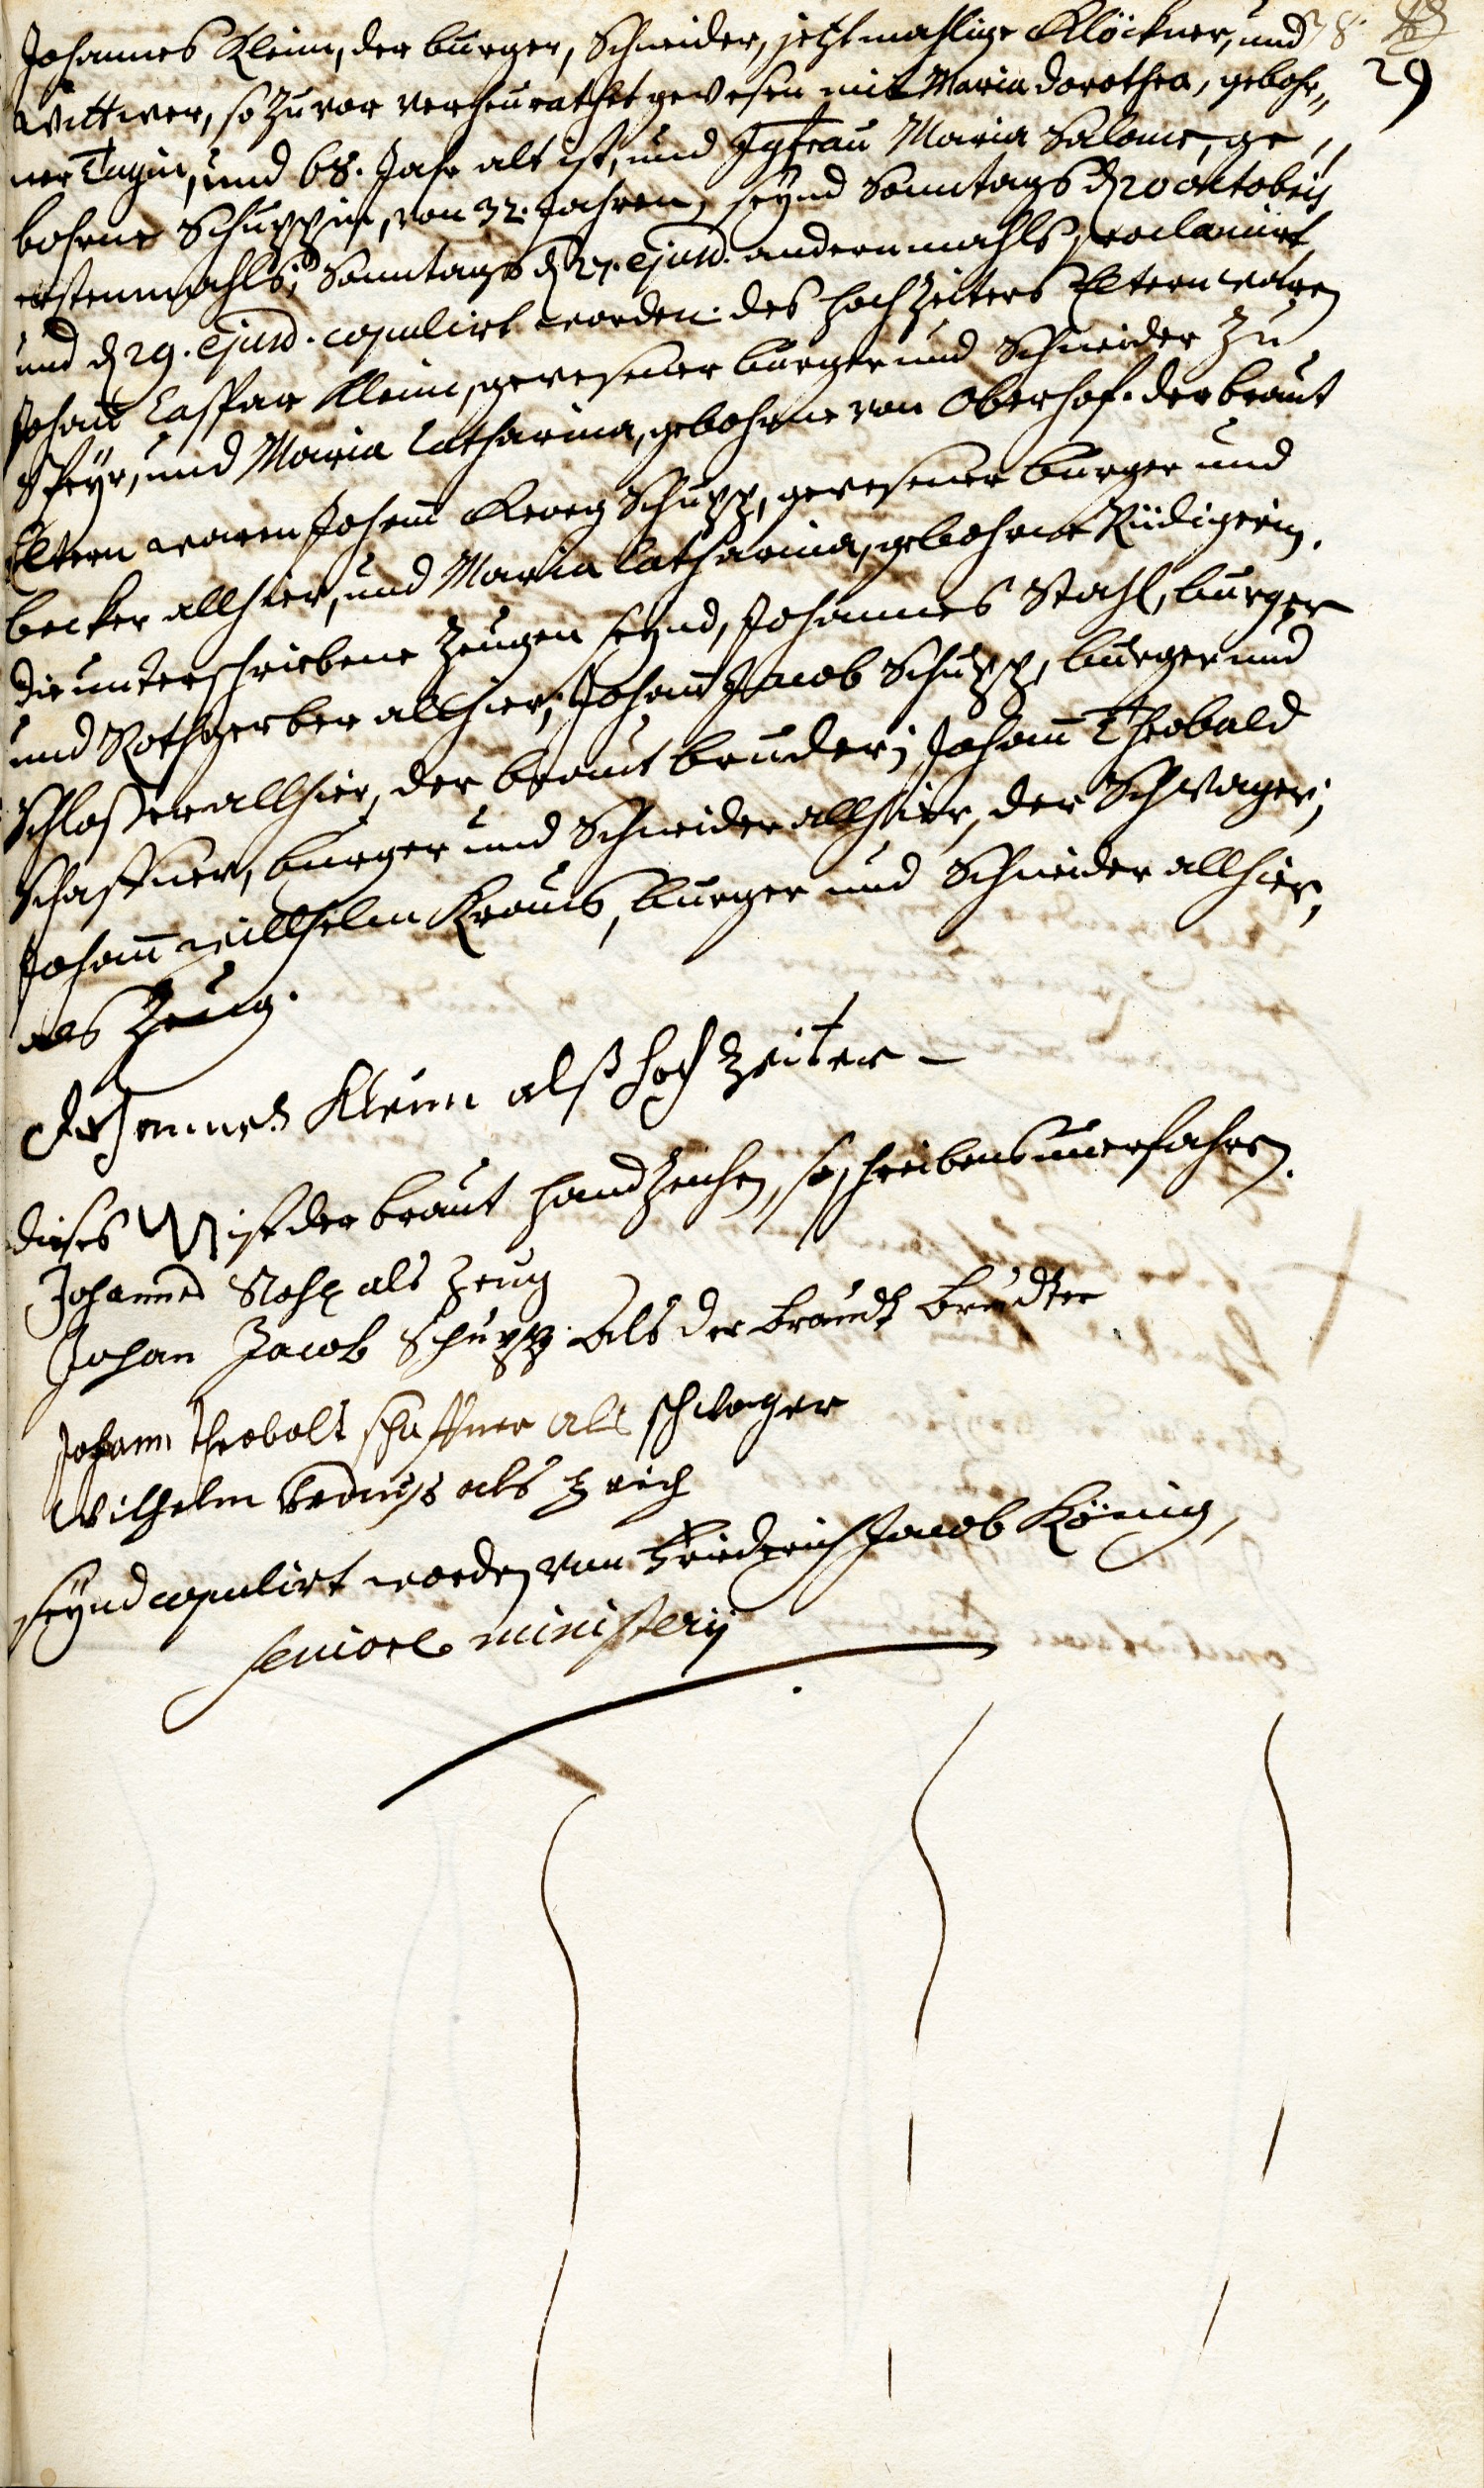 Johannes Klein, der burger, Schneider, jetzt mahlige Klöckner, und
29
Wittwer, so zuvor verheurathet gewesen mit Maria Dorothea, gebohr„
ner Tagin, und 68. Jahr alt ist, und Jgfrau Maria Salome, ge„
bohrne Schuppin, von 32. Jahren, seynd Sonntags d 20 oktobris
erstenmahls, Sonntags d 27. ejusd. andernmahls proclamirt,
und d 29. ejusd. copulirt worden. des hochzeiters Eltern waren
Johañ Caspar Klein, gewesener burger und Schneider zu
Speyr, und Maria Catharina, gebohrne von Oberhof. der braut
Eltern waren Johañ Georg Schupp, gewesener burger und
becker allhier, und Maria Catharina, gebohrne Rüdigerin.
die unterschriebene Zeugen seynd, Johannes Stahl, burger
und Rothgerber allhier, Johañ Jacob Schupp, burger und
Schloßer allhier, der braut bruder; Johañ Theobald
Schaffner, burger und Schneider allhier, der Schwager;
Johañ Willhelm Krauß, burger und Schneider allhier,
als Zeug.
Johannes Klein alß hoch Zeiter
dieses ist der braut handzeichen, so schreibens unerfahren.
Johannes Stahl als Zeug
Johan Jacob Schupp als der braudt brudter
Johann Theobalt schaffner als schwager
Wilhelm Krauß als zeich
seynd copulirt worden von Friederich Jacob König,
seniore ministerij